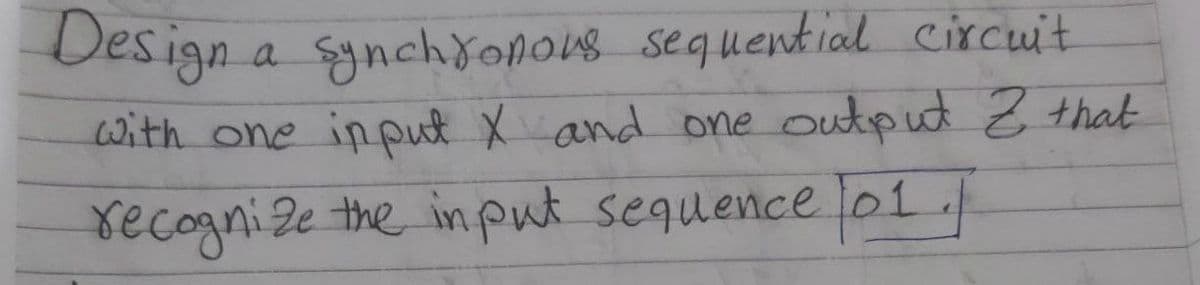 Design a synchronous sequential circuit
with one input X and one output Z that
recognize the input sequence 01.